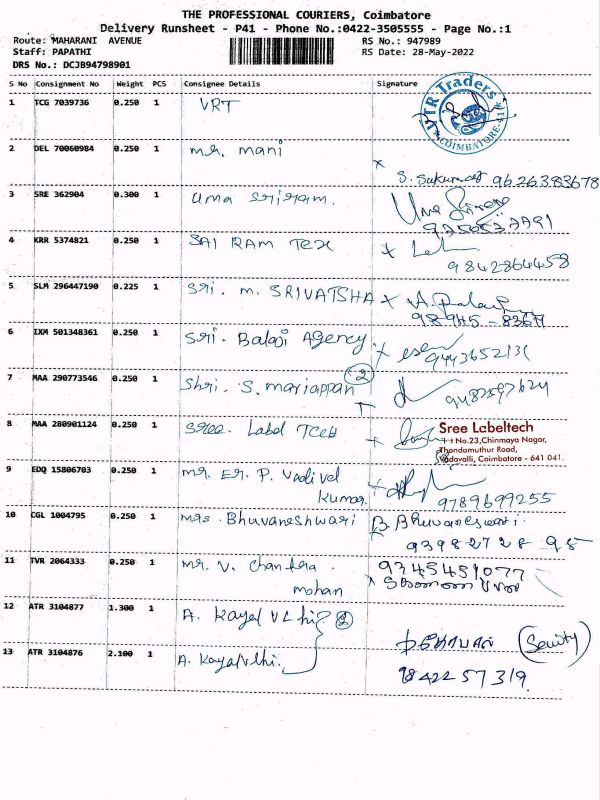 THE PROFESSIONAL COURIERS, Coimbatore
Delivery Runsheet - P41 - Phone No.:0422-3505555 - Page No.:1
Route: MAHARANI AVENUE RS No.: 947989
Staff: PAPATHI RS Date: 28-May-2022
DRS No.: DCJB94798901
S No Consignment No Weight PCS Consignee Details Signature
1 TCG 7039736 0.250 1 VRT VTR Traders COIMBATORE-41
2 DEL 70060984 0.250 1 mr. mani
x S. Sukumar 9626383678
3 SRE 362904 0.300 1 uma sriram.
4 KRR 5374821 0.250 1 SAI RAM Tex x
9842864458
5 SLM 296447190 0.225 1 Sri. m. SRIVATSHA x
6 IXM 501348361 0.250 1 Sri. Balaji Agency x
7 MAA 290773546 0.250 1 Shri. S. mariappan 2
8 MAA 280901124 0.250 1 Sree. Label Tceh
Sree Labeltech
No.23,Chinmaya Nagar,
Thondamuthur Road,
Vadavalli, Coimbatore - 641 041.
9 EDQ 15806703 0.250 1 mr. Er. P. Vadivel
kumar.
9789699255
10 CGL 1004795 0.250 1 mrs. Bhuvaneshwari B. Bhuvaneswari.
93982728 95
11 TVR 2064333 0.250 1 mr. V. Chandra 9345451077
mohan x
12 ATR 3104877 1.300 1 A. Kayal vizhi 2
(Seurity)
13 ATR 3104876 2.100 1 A. Kayalvizhi.
98422 57319.